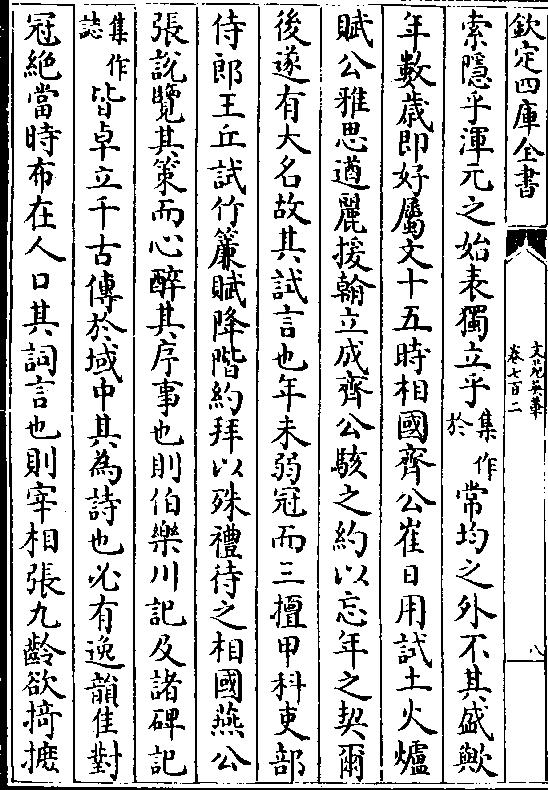 欽定四庫全書
文苑英華
卷七百二
八
索隱乎渾元之始表獨立乎集作於常均之外不其盛歟
年數歳即好屬文十五時相國齊公崔日用試土火爐
賦公雅思遒麗援翰立成齊公駭之約以忘年之契爾
後遂有大名故其試言也年未弱冠而三擅甲科吏部
侍郎王丘試竹簾賦降階約拜以殊禮待之相國燕公
張說覽其策而心醉其序事也則伯樂川記及諸碑記
集作誌皆卓立千古傳於域中其為詩也必有逸韻佳對
冠絶當時布在人口其詞言也則宰相張九齡欲掎摭